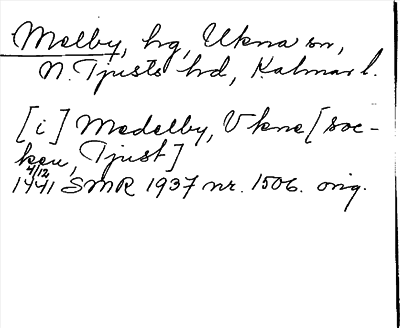 Melby, hg, Ukna sn,
N. Tjusts hd, Kalmar l.
[i] Medelby, Vkne [soc-
ken, Tjust]
4/12
1441 SMR 1937 nr. 1506. orig.